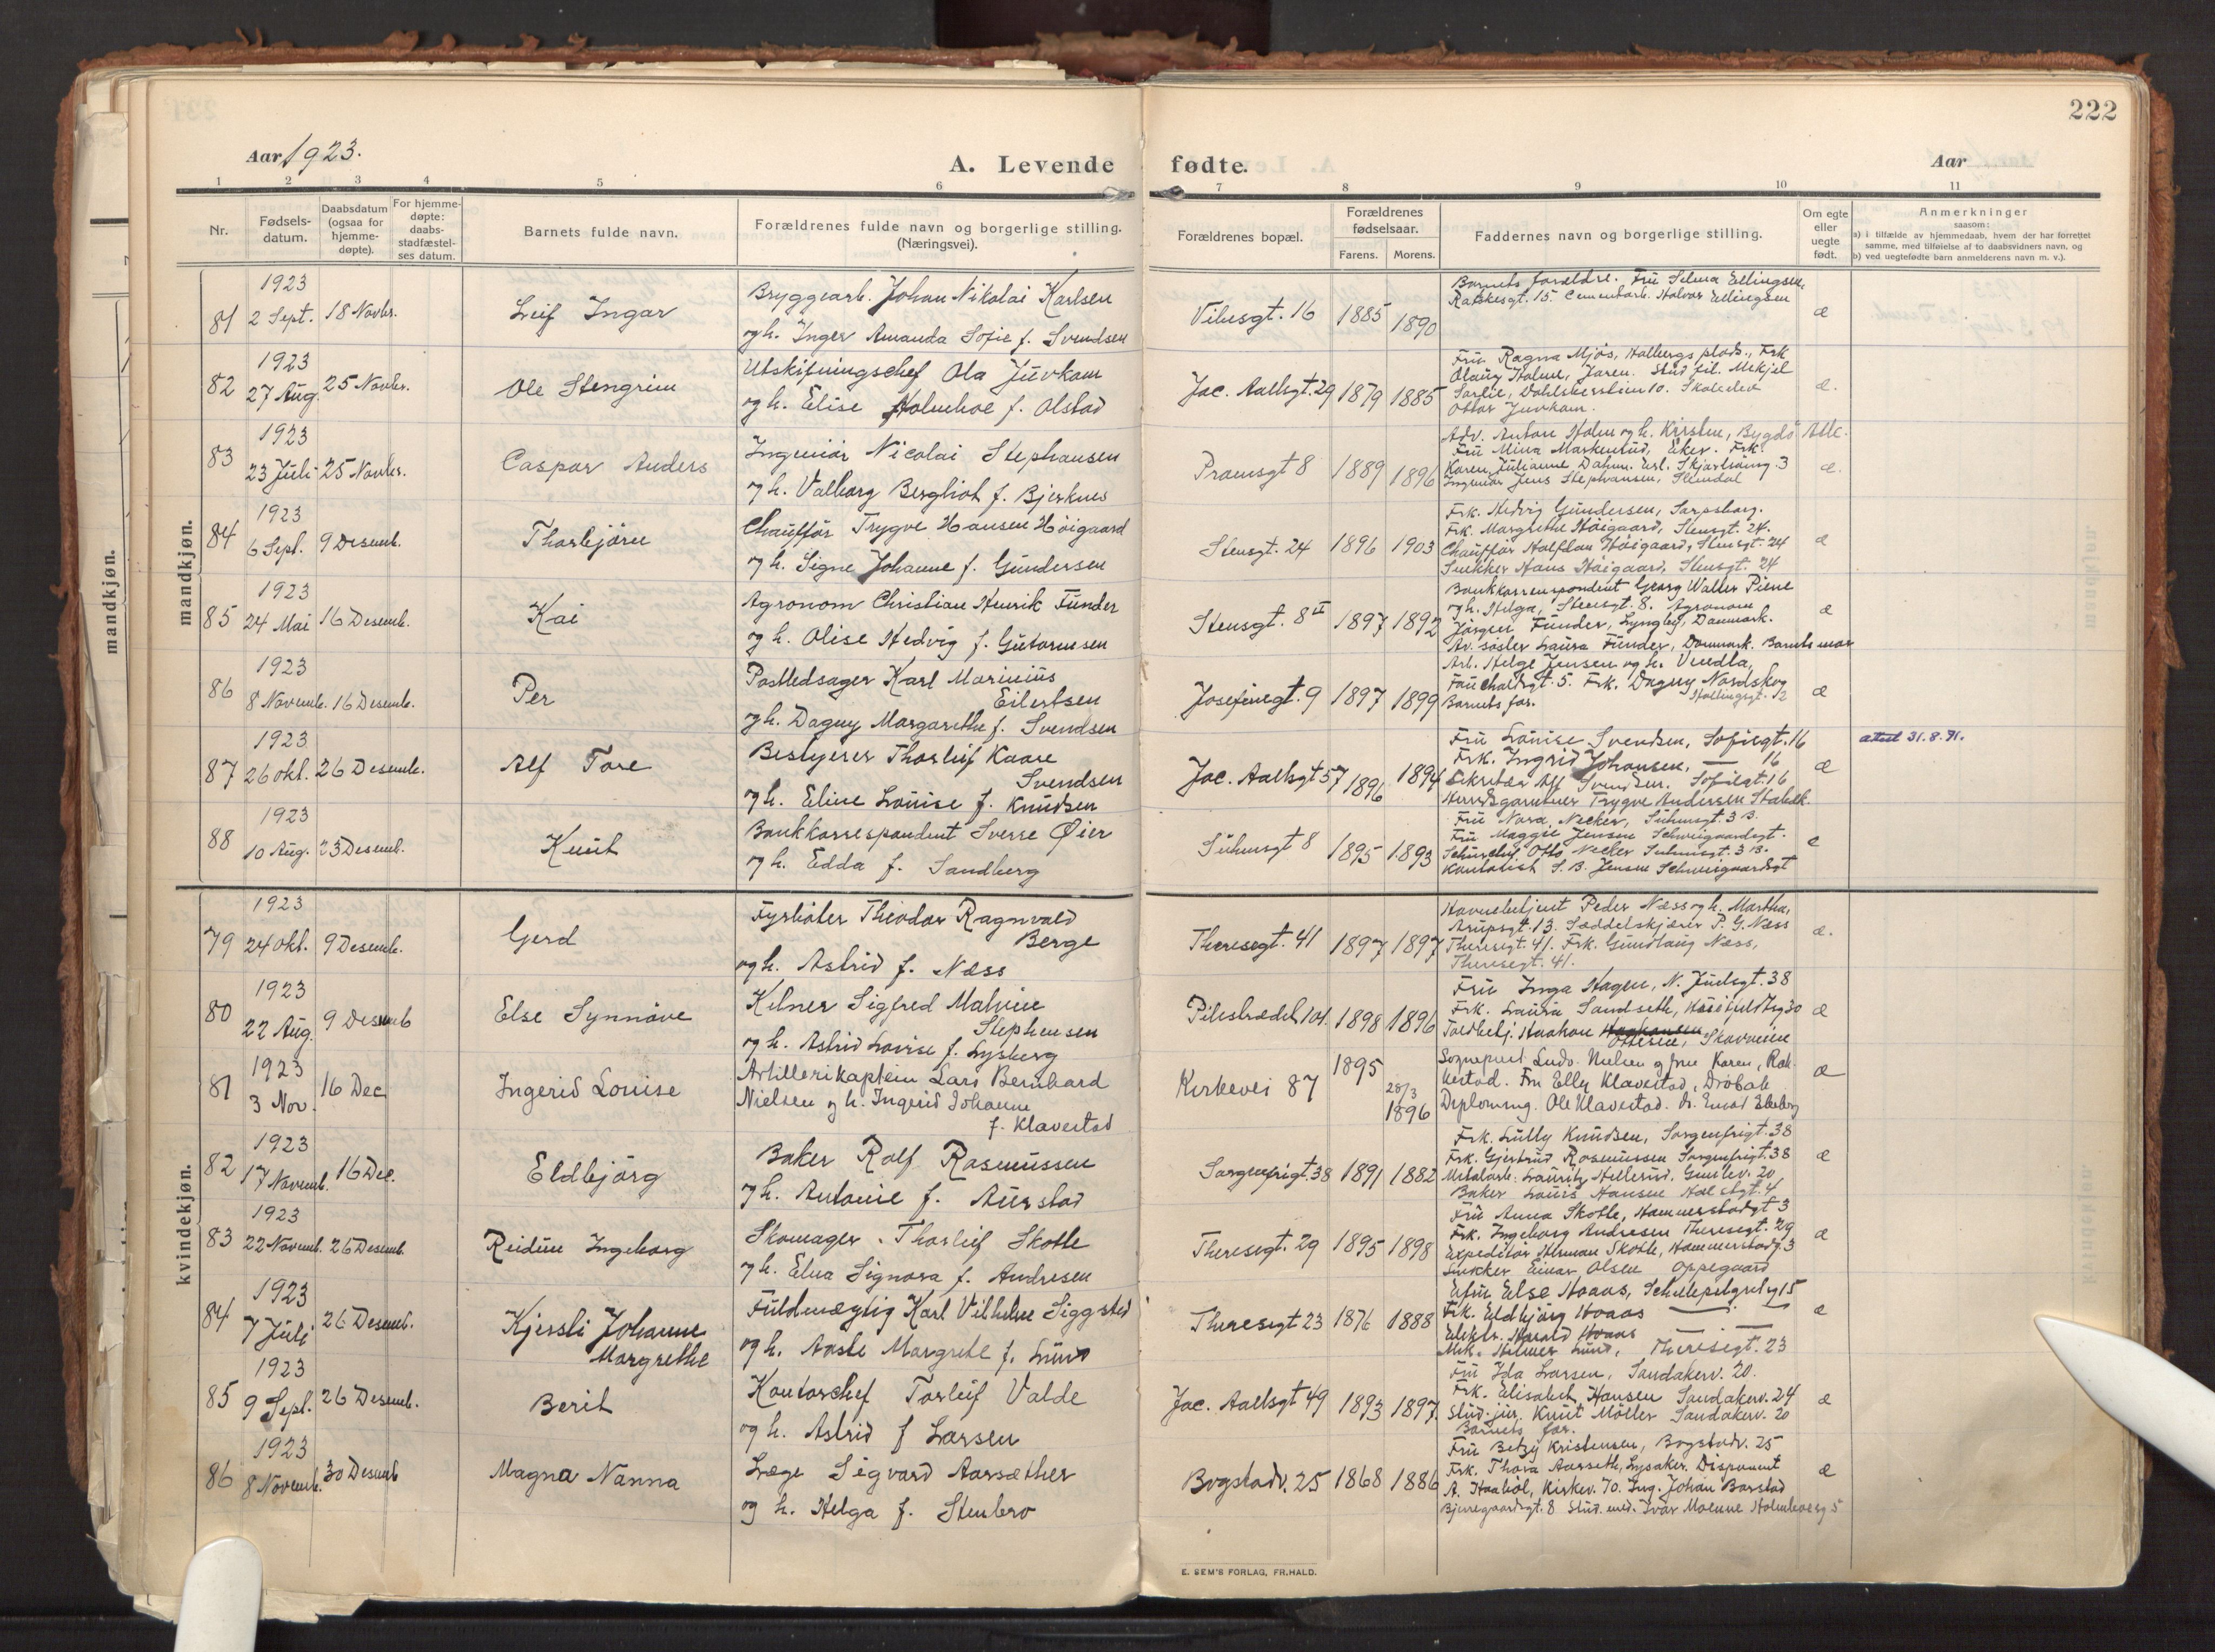 222
Aar 1923.
A. Levende fødte.
Aar
1 2 3 4 5 6 7 8 9 10 11
Nr.
Fødsels-
datum.
Daabsdatum
(ogsaa for
hjemme-
døpte).
For hjemme-
døpte:
daabs-
stadfæstel-
ses datum.
Barnets fulde navn.
Forældrenes fulde navn og borgerlige stilling.
(Næringsvei).
Forældrenes bopæl.
Forældrenes
fødselsaar.
Farens. Morens.
Faddernes navn og borgerlige stilling.
Om egte
eller
uegte
født.
Anmerkninger
saasom:
a) i tilfælde av hjemmedaab, hvem der har forrettet
samme, med tilføielse af to daabsvidners navn, og
b) ved uegtefødte barn anmelderens navn m. v.).
mandkjøn.
mandkjøn.
1923
81 2 Sept. 18 Novbr.
Leif Ingar
Bryggearb. Johan Nikolai Karlsen
og h. Inger Amanda Sofie f. Svendsen
Vibesgt. 16 1885 1890
Barnets forældre. Fru Selma Ellingsen,
Ratkesgt. 15. Cementarb. Halvor Ellingsen
æ
1923
82 27 Aug. 25 Novbr.
Ole Stengrim
Utskiftningschef Ola Juvkam
og h. Elise Holmboe f. Olstad
Jac. Aallsgt. 29 1879 1885
Fru Ragna Mjøs, Halbergs plads., Frk
Olaug Holme, Jaren. Stud. fil. Mekjel
Sørlie, Dahlsbergstien 10. Skoleelev
Ottar Juvkam.
æ.
1923
83 23 Juli 25 Novbr.
Caspar Anders
Ingeniør Nicolai Stephansen
og h. Valborg Bergliot f. Bjerknes
Pramsgt 8 1889 1896
Adv. Anton Holm og h. Kirsten, Bygdö Alle.
Fru Mina Markerud, Eker. Frk.
Karen Julianne Dahm. Erl. Skjalsöng. 3
Ingeniør Jens Stephansen, Slemdal
æ.
1923
84 6 Sept. 9 Desemb.
Thorbjörn
Chauffør Trygve Hansen Høigaard
og h. Signe Johanne f. Gundersen
Stensgt. 24 1896 1903
Frk. Hedvig Gundersen, Sarpsborg.
Frk. Margrethe Høigaard, Stensgt. 24.
Chauffør Halfdan Høigaard, Stensgt. 24
Snekker Hans Høigaard, Stensgt. 24
æ
1923
85 24 Mai 16 Desemb.
Kai
Agronom Christian Henrik Funder
og h. Olise Hedvig f. Gutormsen
Stensgt. 8 II 1897 1892
Bankkorrespondent Georg Walter Piene
og h. Helga, Stensgt. 8. Agronom
Jørgen Funder, Lyngby, Danmark.
Av. søster Laura Funder, Danmark. Barnets mor
æ
1923
86 8 Novemb. 16 Desemb.
Per
Postledsager Karl Marinius
Eilertsen
og h. Dagny Margarethe f. Svendsen
Josefinegt. 9 1897 1899
Arb. Helge Jensen og h. Vendla,
Fauchaldsgt. 5. Frk. Dagny Nordskog
Hallingsgt. 12
Barnets far.
æ
1923
87 26 Okt. 26 Desemb.
Alf Tore
Bestyrer Thorleif Kaare
Svendsen
og h. Eline Louise f. Knudsen
Jac. Aallsgt 57 1896 1894
Fru Louise Svendsen, Sofiegt. 16
Frk. Ingrid Johansen, — 16
Sekretær Alf Svendsen. Sofiegt. 16
Herredsgartner Trygve Andersen Stabek.
æ
attest 31.8.71.
1923
88 10 Aug. 23 Desemb.
Knut
Bankkorrespondent Sverre Øier
og h. Edda f. Sandberg
Suhmsgt 8 1895 1893
Fru Nora Necker, Suhmsgt. 3 B.
Fru Maggie Jensen Schweigaardsgt.
Otto Necker Suhmsgt. 3 B.
Kontorist S. B. Jensen Schweigaardsgt
e
kvindekjøn.
1923
79 24 Okt. 9 Desemb.
Gerd
Fyrbøter Theodor Ragnvald
Berge
og h. Astrid f. Næss
Theresegt. 41 1897 1897
Havnebetjent Peder Næss og h. Martha,
Arupsgt. 13. Sæddelskjærer P. G. Næss
Theresegt. 41. Frk. Gundlaug Næss,
Theresegt. 41.
æ.
1923
80 22 Aug. 9 Desemb
Else Synnøve
Kelner Sigfred Malvin
Stephensen
og h. Astrid Lovise f. Lysberg
Pilestrædet 104. 1898 1896
Fru Inga Hagen, N. Juulsgt. 38
Frk. Laura Sandseth, 30
Toldbetj. Haakon Haakonsen Ottesen, Skavveien
æ
1923
81 3 Nov. 16 Dec
Ingerid Louise
Artillerikaptein Lars Bernhard
Nielsen og h. Ingerid Johanne
f. Klavestad
Kirkevei 87 1895 28/3 1896
Sogneprest Ludv. Nielsen og frue Karen, Rak-
kestad. Fru Elly Klavestad, Drøbak
Diploming. Ole Klavestad. dr.
æ
1923
82 17 Novemb. 16 Dec.
Eldbjørg
Baker Rolf Rasmussen
og h. Antonie f. Aurstad
Sorgenfrigt. 38 1891 1882
Frk. Lully Knudsen, Sorgenfrigt. 38
Frk. Gjertrud Rasmussen Sorgenfrigt. 38
Metalarb. Lauritz Hellerud. Gunlev. 20
Baker Louis Hansen Hol gt. 4
æ
1923
83 22 Novemb. 26 Desemb.
Reidun Ingeborg
Skomager Thorleif Skotte
og h. Elna Signora f. Andresen
Theresegt. 29 1895 1898
Fru Anna Skotte, Hammerstadgt 3
Frk. Ingeborg Andresen Theresegt. 29
Expeditør Herman Skotte, Hammerstadg. 3
Snekker Einar Olsen Oppegaard
æ
1923
84 7 Juli 26 Desemb.
Kjersti Johanne
Margrethe
Fuldmægtig Karl Vilhelm Siggsted
og h. Aaste Margrete f. Lund
Theresegt 23 1876 1888
Efru Else Hoaas, Schultepelgrelvg 15
Frk. Eldbjørg Hoaas —
Elektr. Harald Hoaas —
Mek. Hilmer Lund, Theresegt. 23
æ
1923
85 9 Sept. 26 Desemb.
Berit
Kontorchef Torleif Valde
og h. Astrid f Larsen
Jac. Aallsgt 49 1893 1897.
Fru Ida Larsen, Sandakerv. 20.
Frk. Elisabet Hansen Sandakerv. 24
Stud. jur. Knut Møller Sandakerv. 20
Barnets far.
æ
1923
86 8 Novemb. 30 Desemb
Magna Nanna
Læge Sigvard Aarsæther
og h. Helga f. Stenbro
Bogstadv. 25 1868 1886
Fru Betzy Kristensen, Bogstadv. 25
Frk. Thora Aarseth, Lysaker. Disponent
A. Haabøl, Kirkev. 70. Ing. Johan Barstad
Bjerregaardsgt. 8 Stud. med. Ivar Moenne Holmboesg 5
æ
E. SEM'S FORLAG, FR.HALD.